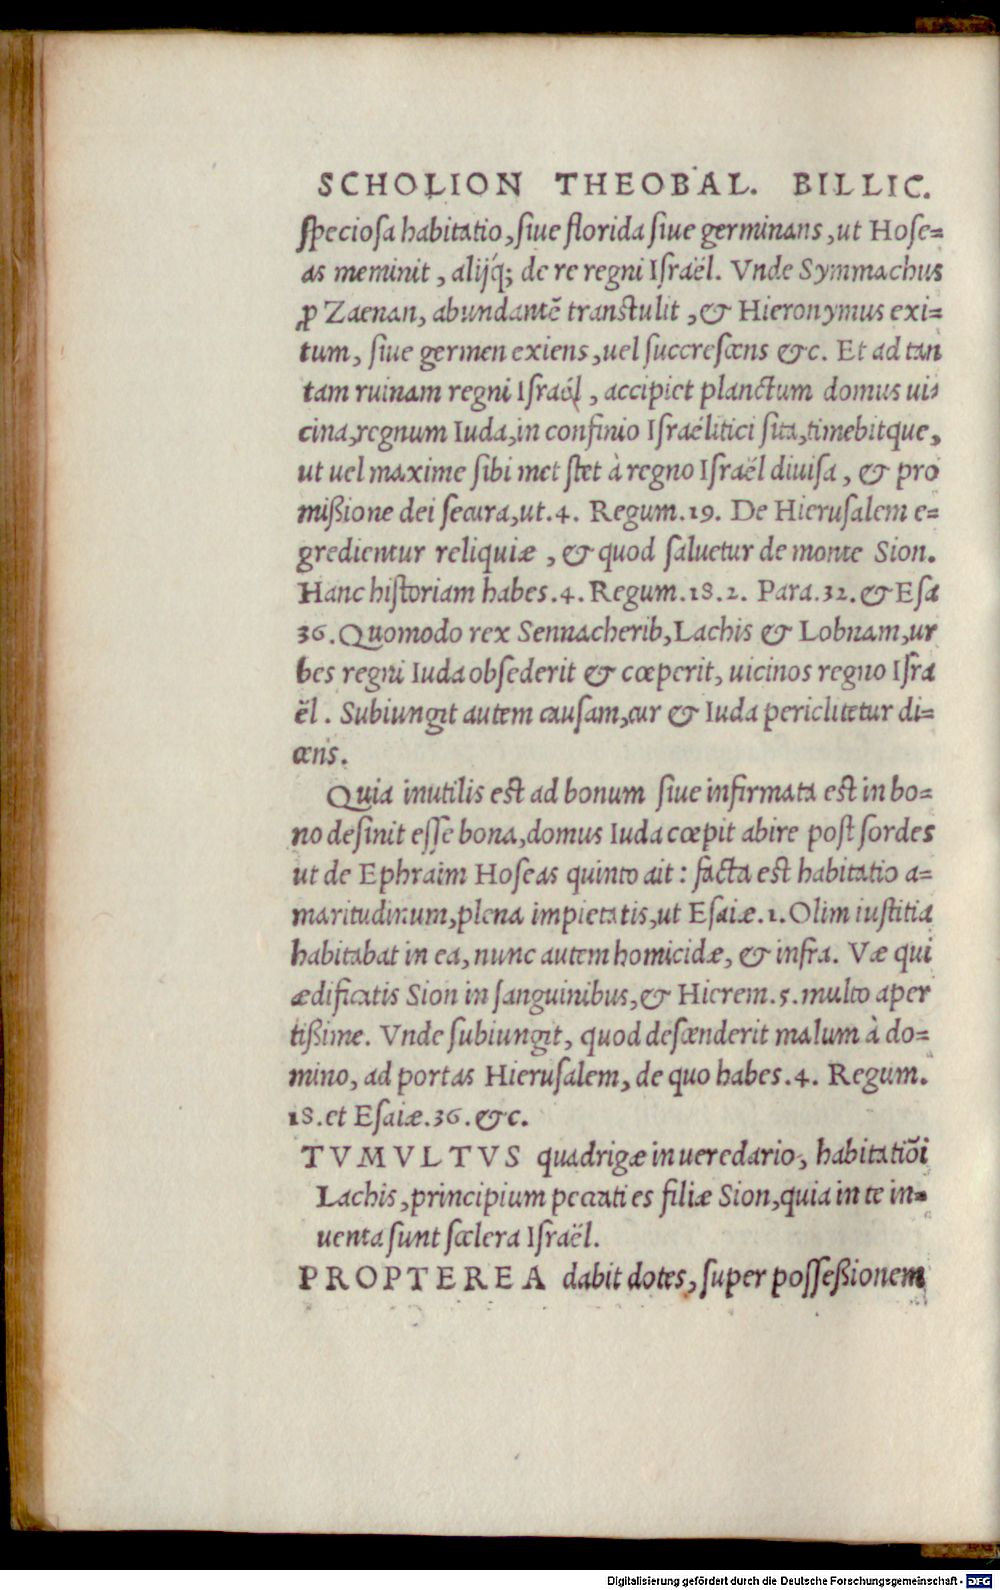 SCHOLION THEOBAL. BILLIC.
ſpecioſa habitatio, ſiue florida ſiue germinans, ut Hoſe=
as meminit, alijq́; de re regni Iſraël. Vnde Symmachus
ꝓ Zaenan, abundantẽ transtulit, & Hieronymus exi=
tum, ſiue germen exiens, uel ſuccreſcens &c. Et ad tan
tam ruinam regni Iſraël, accipiet planctum domus ui=
cina, regnum Iuda, in confinio Iſraëlitici ſita, timebitque,
ut uel maxime ſibi met ſtet à regno Iſraël diuiſa, & pro
mißione dei ſecura, ut.4. Regum.19. De Hieruſalem e=
gredientur reliquiæ, & quod ſaluetur de monte Sion.
Hanc hiſtoriam habes.4. Regum.18.2. Para.32.& Eſa
36. Quomodo rex Sennacherib, Lachis & Lobnam, ur
bes regni Iuda obſederit & cœperit, uicinos regno Iſra
ël. Subiungit autem cauſam, cur & Iuda periclitetur di=
cens.
Quia inutilis est ad bonum ſiue infirmata est in bo=
no deſinit eſſe bona, domus Iuda cœpit abire poſt ſordes
ut de Ephraim Hoſeas quinto ait: facta est habitatio a=
maritudinum, plena impietatis, ut Eſaiæ.1. Olim iuſtitia
habitabat in ea, nunc autem homicidæ, & infra. Væ qui
ædificatis Sion in ſanguinibus, & Hierem.5. multo aper
tißime. Vnde ſubiungit, quod deſcenderit malum à do=
mino, ad portas Hieruſalem, de quo habes.4. Regum.
18. et Eſaiæ.36. &c.
TVMVLTVS quadrigæ in ueredario, habitatiõi
Lachis, principium peccati es filiæ Sion, quia in te in=
uenta ſunt ſcelera Iſraël.
PROPTEREA dabit dotes, ſuper poſſeßionem
Digitalisierung gefördert durch die Deutsche Forschungsgemeinschaft - DFG